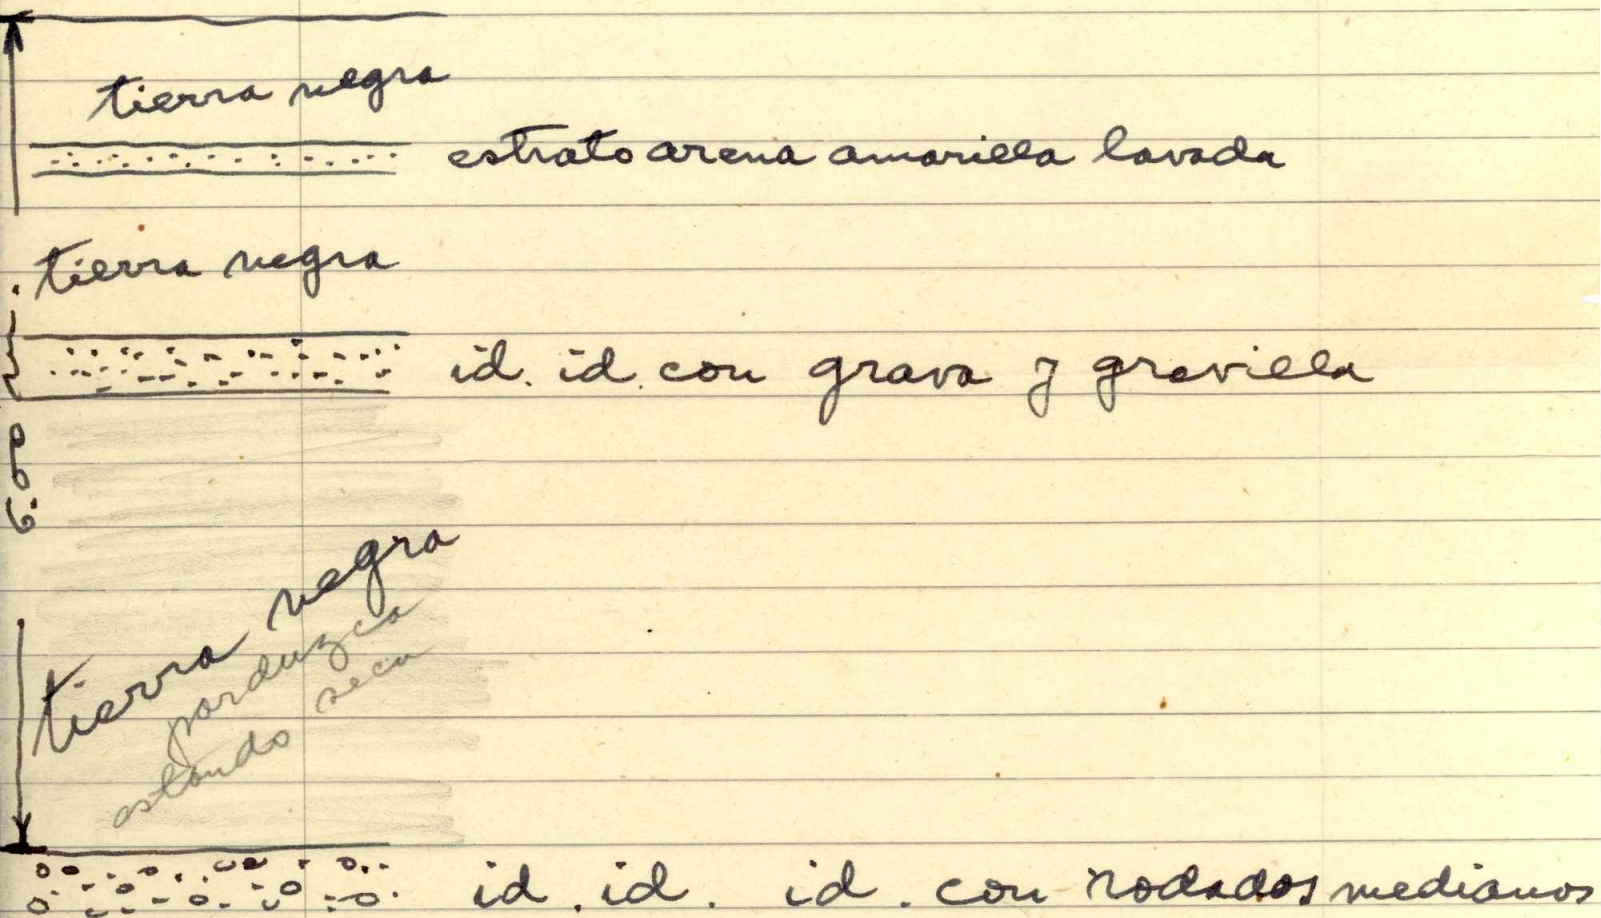 tierra negra
estrato arena amarilla lavada
tierra negra
id. id. con grava y gravilla
tierra negra
parduzca
estando seca
id. id. id. con rodados medianos